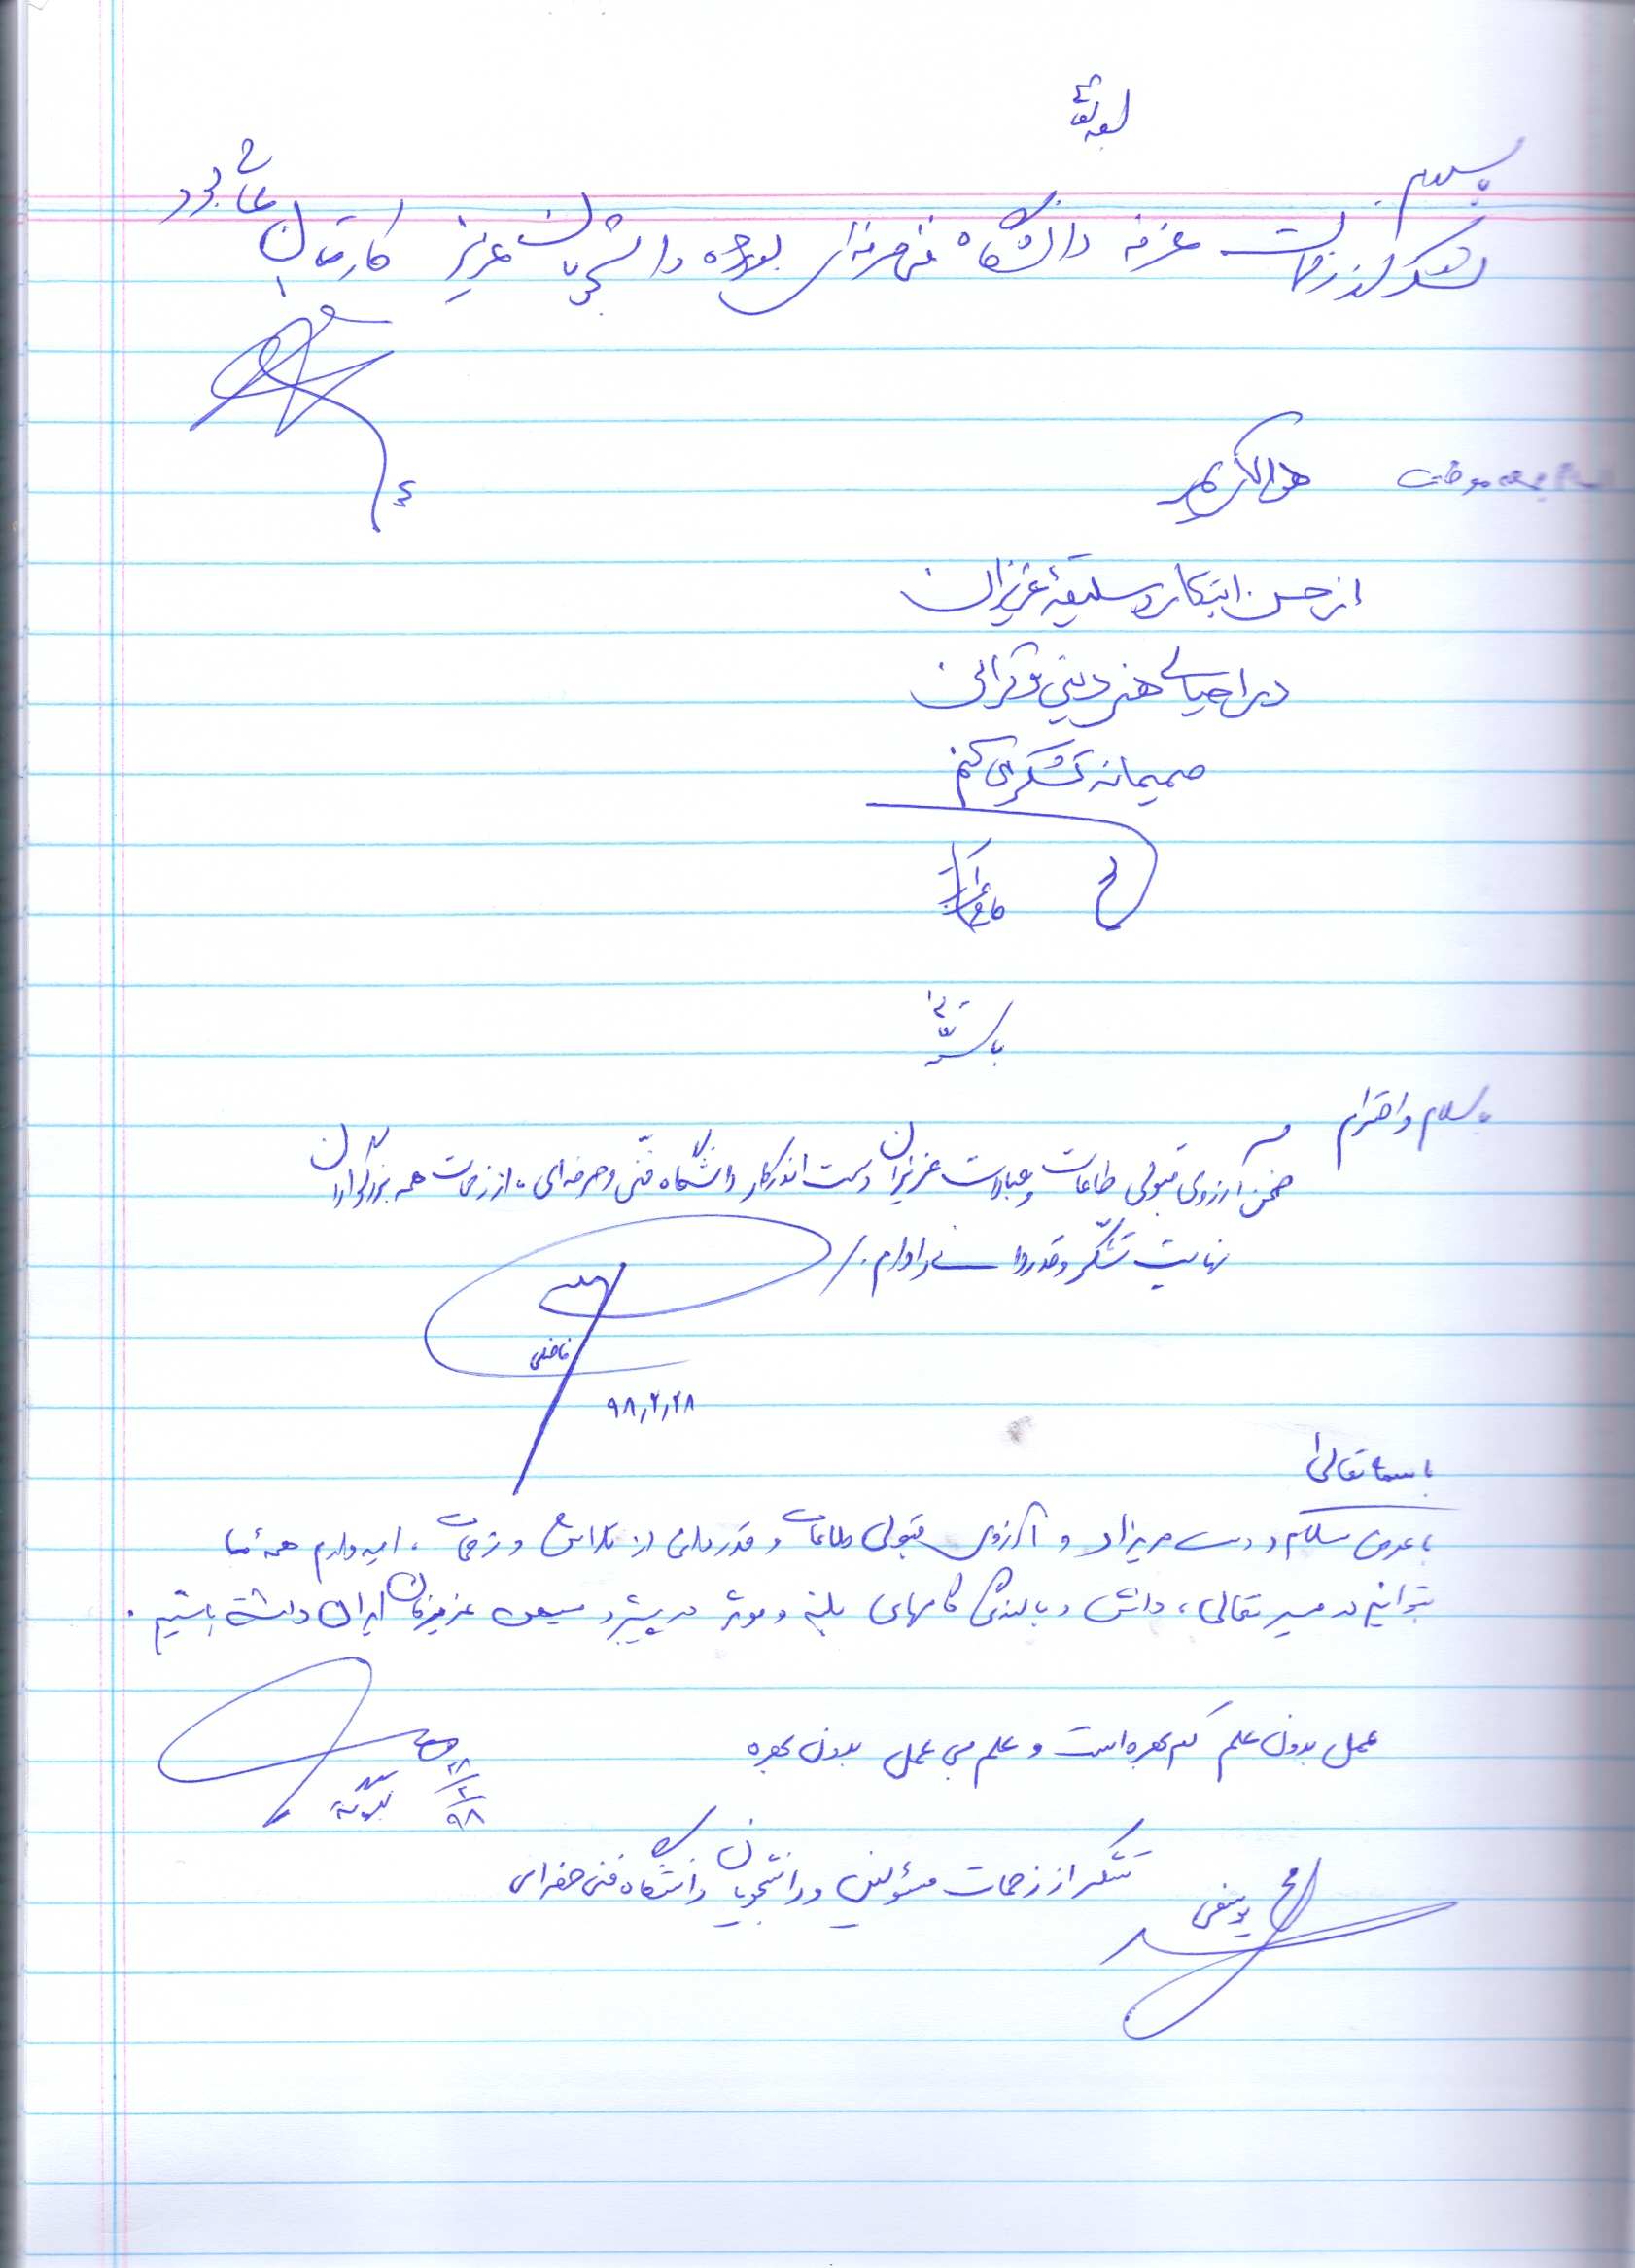 بسلام
تشکر از زحمات غرفه دانشگاه فنی حرفه‌ای بویژه دانشجویان عزیز کارتان عالی بود
هوالکریم
از حسن ابتکار و سلیقهٔ عزیزان
در احیای هنر دینی و قرآنی
صمیمانه تشکر می‌کنم
باسلام و احترام
ضمن آرزوی قبولی طاعات و عبادات عزیزان دست اندرکار دانشگاه فنی و حرفه‌ای، از زحمات همه بزرگواران
نهایت تشکر و قدردانی را دارم.
فاضلی
۹۸,۲,۲۸
باسمه تعالی
با عرض سلام و و آرزوی قبولی طاعات و قدردانی از تلاش و زحمات، امیدوارم همه ما
بتوانیم در مسیر تعالی، دانش و بالندگی گامهای بلند و موثر در پیشبرد میهن عزیزمان ایران داشته باشیم.
عمل بدون علم کم بهره است و علم بی عمل بدون بهره
۲۸/۲/۹۸
تشکر از زحمات مسئولین و دانشجویان دانشگاه فنی حرفه‌ای
یوسفی